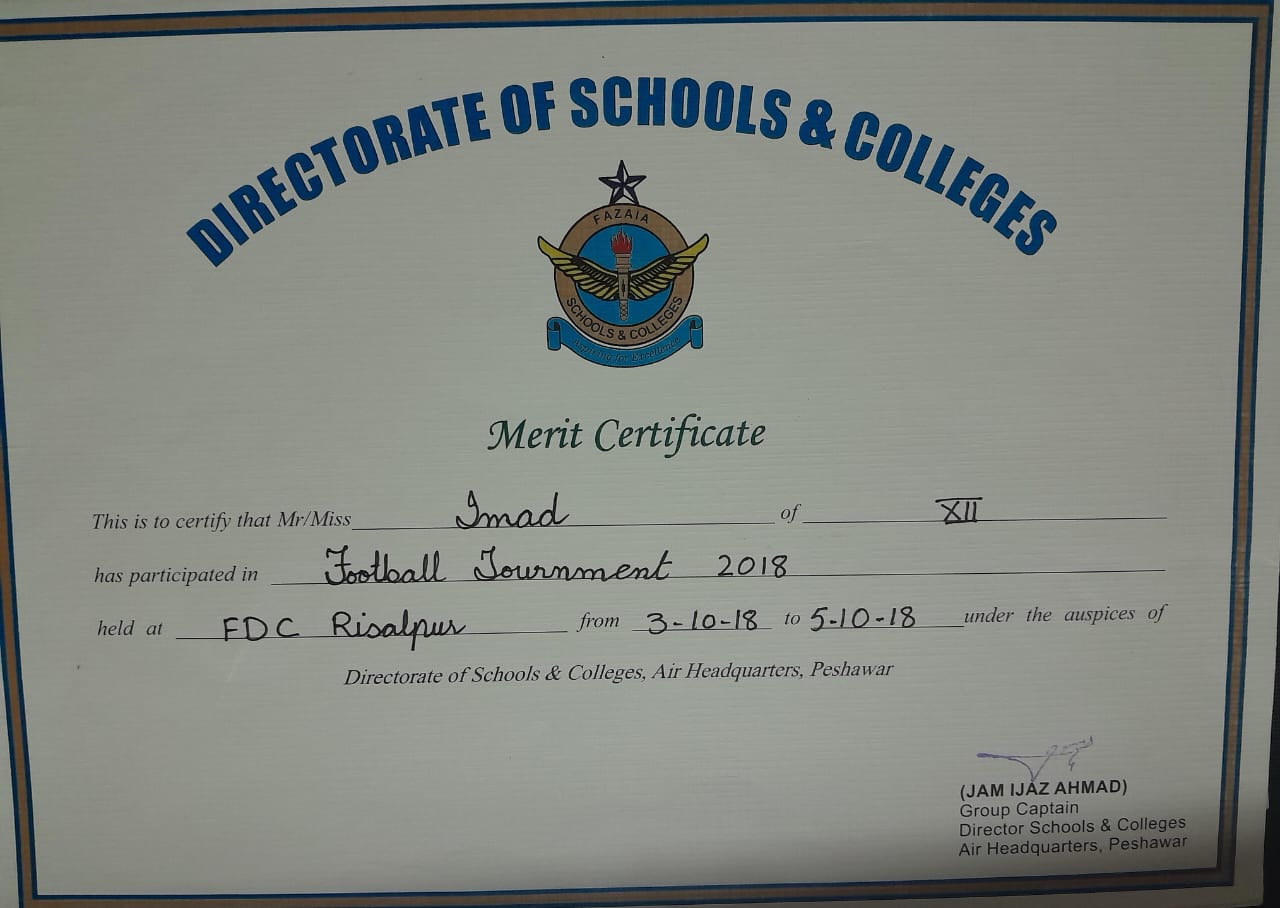 DIRECTORATE OF SCHOOLS & COLLEGES
FAZAIA
SCHOOLS & COLLEGES
Aspiring for Excellence
Merit Certificate
This is to certify that Mr/Miss Imad of XII
has participated in Football Tournment 2018
held at FDC Risalpur from 3-10-18 to 5-10-18 under the auspices of
Directorate of Schools & Colleges, Air Headquarters, Peshawar
(JAM IJAZ AHMAD)
Group Captain
Director Schools & Colleges
Air Headquarters, Peshawar